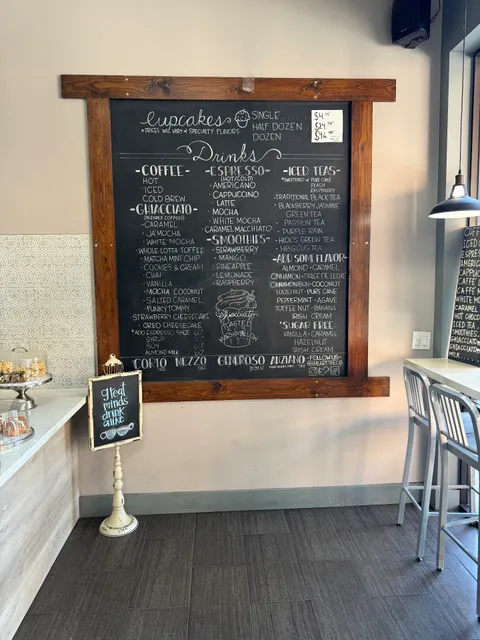 Cupcakes
*PRICES WILL VARY W/ SPECIALTY FLAVORS
SINGLE
HALF DOZEN
DOZEN
Drinks
-COFFEE-
HOT
ICED
COLD BREW
-GHIACCIATO-
(BLENDED COFFEES)
CARAMEL
JA'MOCHA
WHITE MOCHA
WHOLE LOTTA TOFFEE
MATCHA MINT CHIP
COOKIES & CREAM
CHAI
VANILLA
MOCHA COCONUT
SALTED CARAMEL
FUNKY TOMMY
STRAWBERRY CHEESECAKE
OREO CHEESECAKE
*ADD ESPRESSO SHOT
SYRUP
SOY
ALMOND MILK
-ESPRESSO-
(HOT/COLD)
AMERICANO
CAPPUCCINO
LATTE
MOCHA
WHITE MOCHA
CARAMEL MACCHIATO
-SMOOTHIES-
STRAWBERRY
MANGO
PINEAPPLE
LEMONADE
RASPBERRY
-ICED TEAS-
*SWEETENED W/ PURE CANE
PEACH
RASPBERRY
TRADITIONAL BLACK TEA
BLACKBERRY JASMINE
GREEN TEA
PASSION TEA
PURPLE RAIN
HICK'S GREEN TEA
HIBISCUS TEA
-ADD SOME FLAVOR-
ALMOND • CARAMEL
CINNAMON • DULCE DE LECHE
CINNAMON BUN • COCONUT
HAZELNUT • PURE CANE
PEPPERMINT • AGAVE
TOFFEE NUT • BANANA
IRISH CREAM
*SUGAR FREE
VANILLA • CARAMEL
HAZELNUT
IRISH CREAM
CORTO MEZZO GENEROSO ANZIANO
FOLLOW US
great
minds
drink
alike